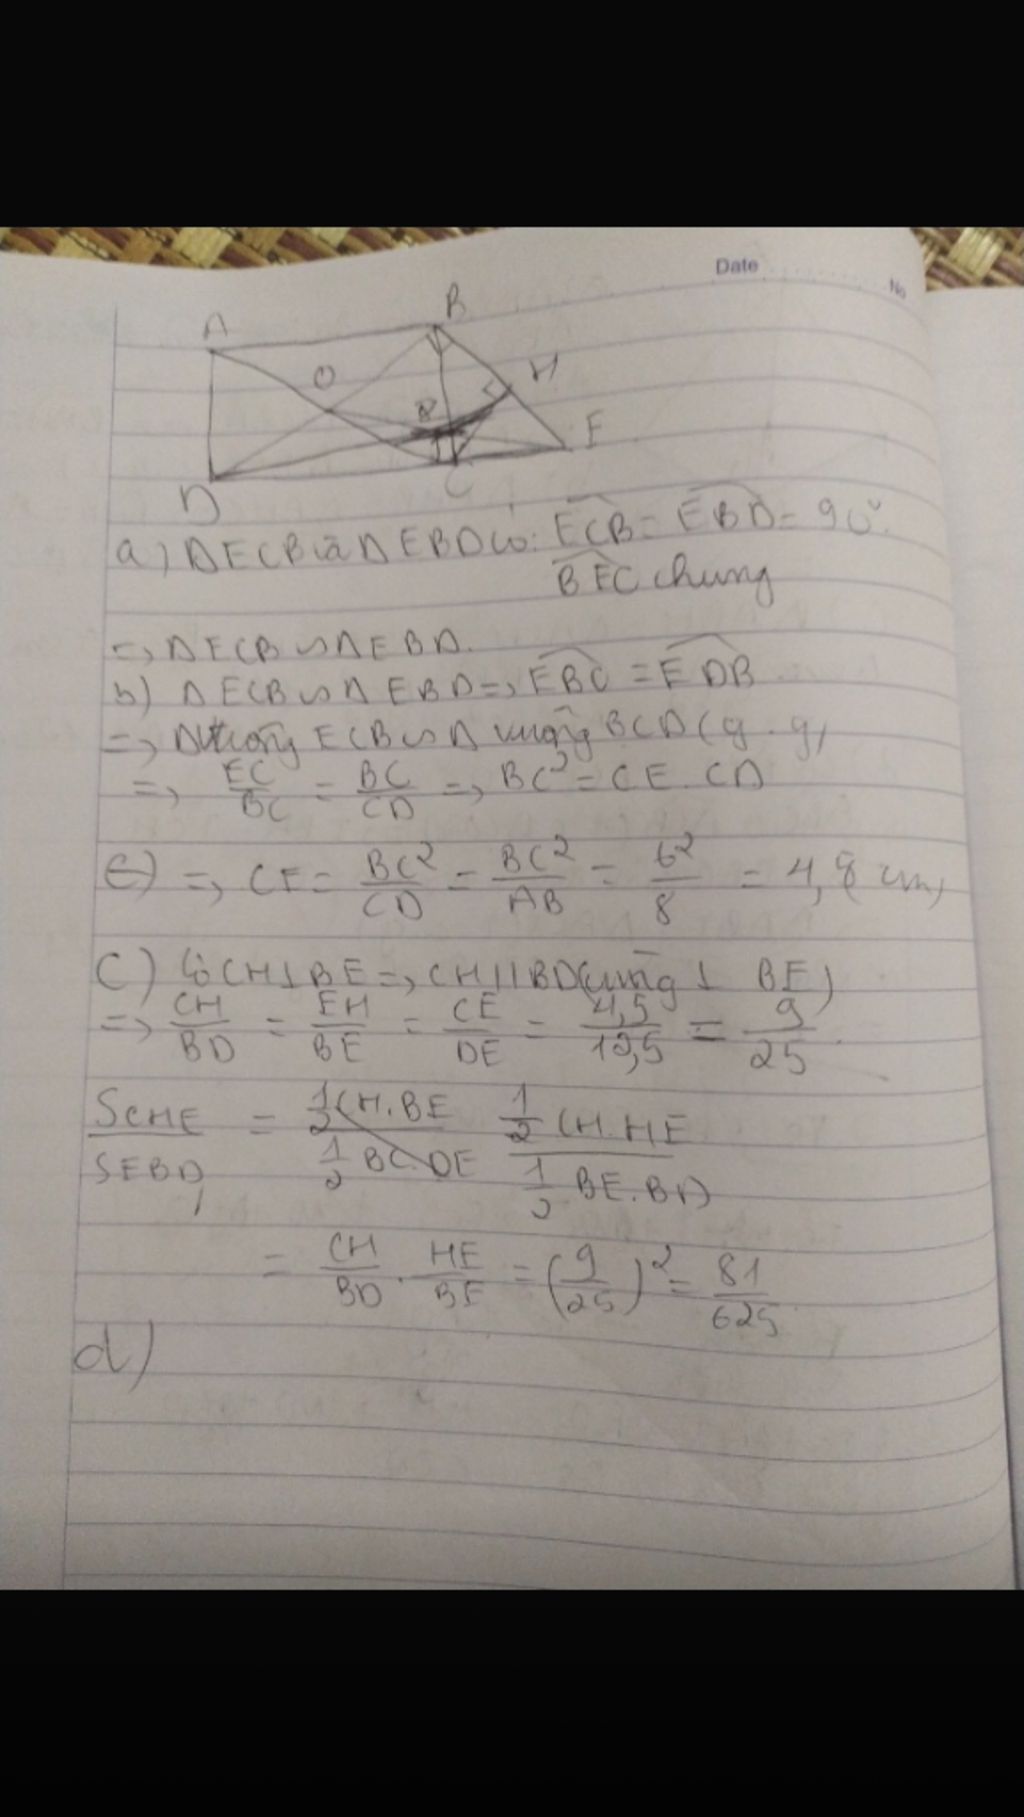 Date
No
A
B
O
H
E
D
C
a) ΔECB và ΔEBD có: ECB = EBD = 90°.
BEC chung
=> ΔECB ∽ ΔEBD.
b) ΔECB ∽ ΔEBD => EBC = EDB
=> Δvuông ECB ∽ Δ vuông BCD (g.g)
=> EC/BC = BC/CD => BC² = CE.CD
=> CE = BC²/CD = BC²/AB = 6²/8 = 4,5 cm
c) Có CH⊥BE => CH//BD (cùng ⊥ BE)
=> CH/BD = EH/BE = CE/DE = 4,5/12,5 = 9/25.
SCHE/SEBD = (1/2 CH.HE)/(1/2 BE.BD)
= CH/BD . HE/BE = (9/25)² = 81/625
d)